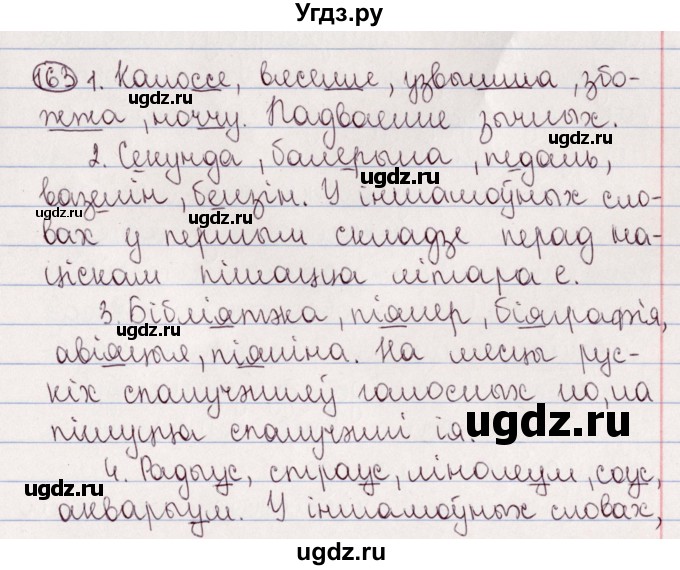 Угдз.ру
163 1. Калоссе, вяселле, узвышша, збо-
жжа, ноччу. Падваенне зычных.
2. Секунда, балерына, педаль,
вазелін, бензін. У іншамоўных сло-
вах у першым складзе перад на-
ціскам пішацца літара е.
3. Бібліятэка, піянер, біяграфія,
авіяцыя, піяніна. На месцы рус-
кіх спалучэнняў галосных ио, иа
пішуцца спалучэнні ія.
4. Радыус, страус, лінолеум, соус,
акварыум. У іншамоўных словах,
ugdz.ru
ugdz.ru
ugdz.ru
ugdz.ru
ugdz.ru
ugdz.ru
ugdz.ru
ugdz.ru
ugdz.ru
ugdz.ru
ugdz.ru